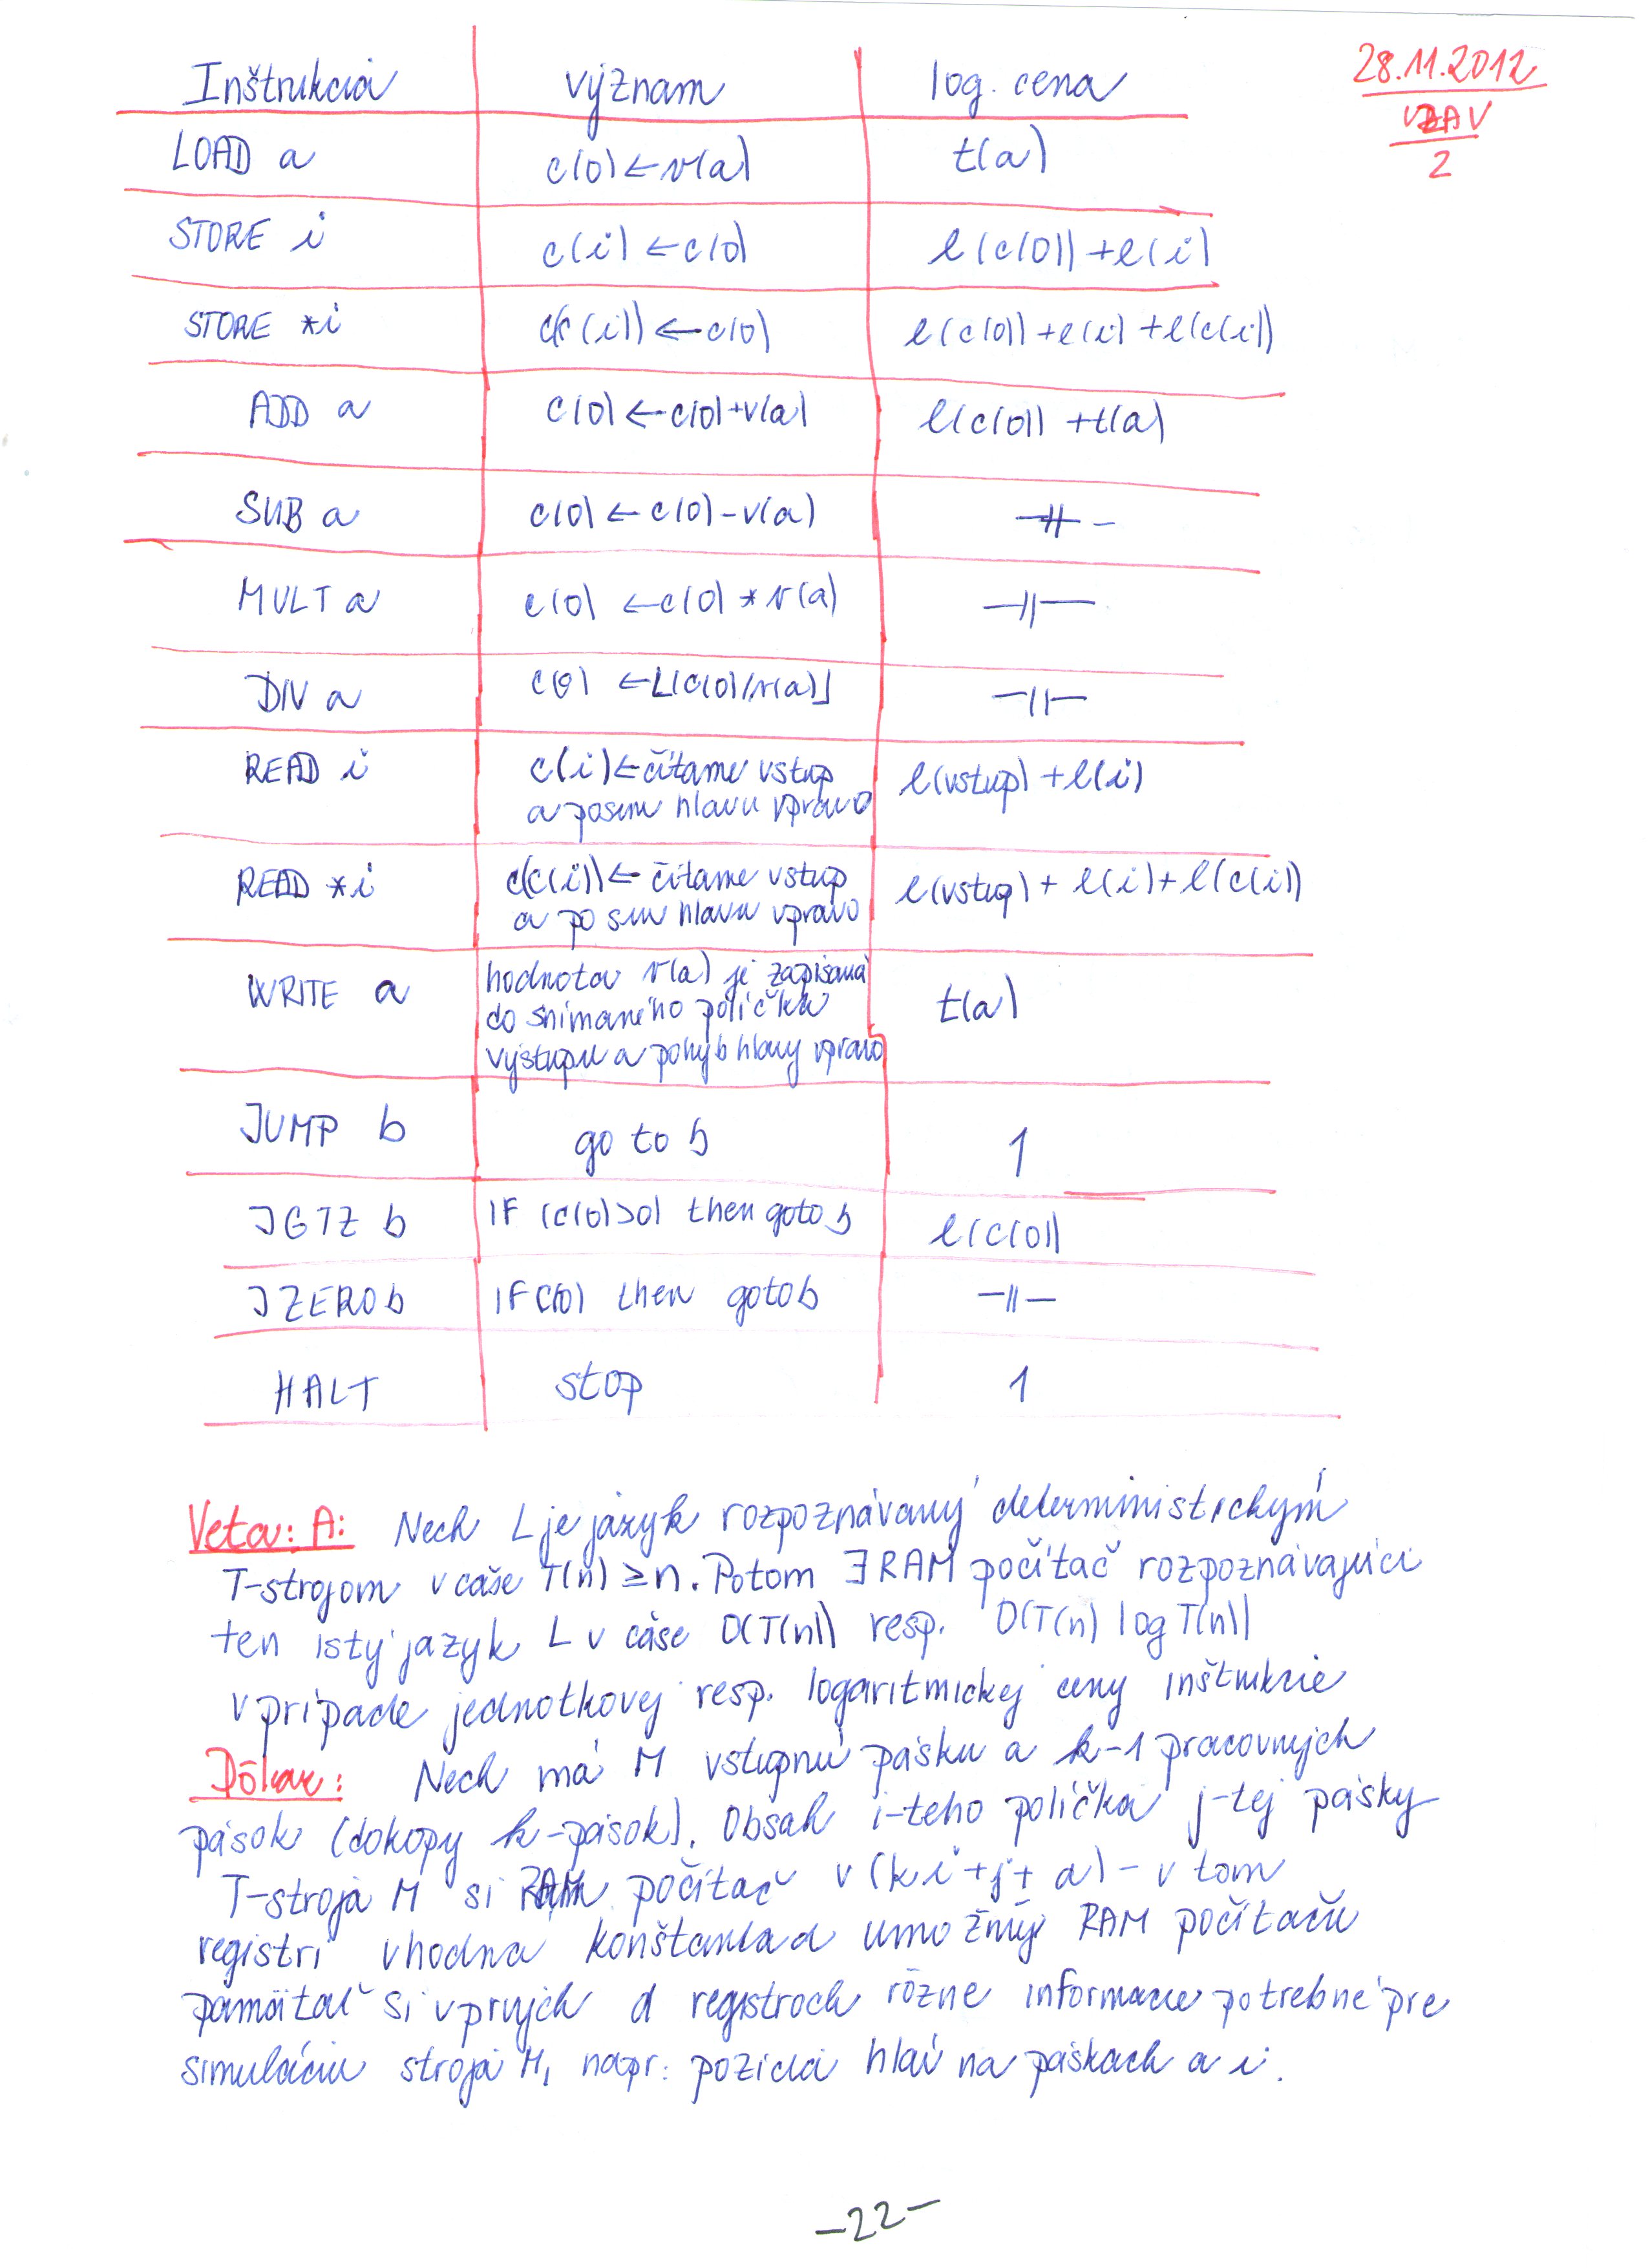 28.11.2012
VZAV
2
Inštrukcia význam log. cena
LOAD a c(0) ← v(a) t(a)
STORE i c(i) ← c(0) l(c(0)) + l(i)
STORE *i c(c(i)) ← c(0) l(c(0)) + l(i) + l(c(i))
ADD a c(0) ← c(0) + v(a) l(c(0)) + t(a)
SUB a c(0) ← c(0) - v(a) -||-
MULT a c(0) ← c(0) * v(a) -||-
DIV a c(0) ← ⌊(c(0)/v(a)⌋ -||-
READ i c(i) ← čítame vstup l(vstup) + l(i)
a posun hlavu vpravo
READ *i c(c(i)) ← čítame vstup l(vstup) + l(i) + l(c(i))
a posun hlavu vpravo
WRITE a hodnota v(a) je zapísaná t(a)
do snímaného políčka
výstupu a pohyb hlavy vpravo
JUMP b go to b 1
JGTZ b IF (c(0)>0) then goto b l(c(0))
JZERO b IF c(0) then goto b -||-
HALT stop 1
Veta: A: Nech L je jazyk rozpoznávaný deterministickým
T-strojom v čase T(n) ≥ n. Potom ∃ RAM počítač rozpoznávajúci
ten istý jazyk L v čase O(T(n)) resp. O(T(n) log T(n))
v prípade jednotkovej resp. logaritmickej ceny inštrukcie
Dôkaz: Nech má M vstupnú pásku a k-1 pracovných
pások (dokopy k-pások). Obsah i-teho políčka j-tej pásky
T-stroja M si RAM počítač v (ki + j + d) - v tom
registri vhodna konštanta d umožňuje RAM počítaču
pamätať si v prvých d registroch rôzne informacie potrebné pre
simuláciu stroja M, napr: pozicia hláv na páskach a i.
-22-